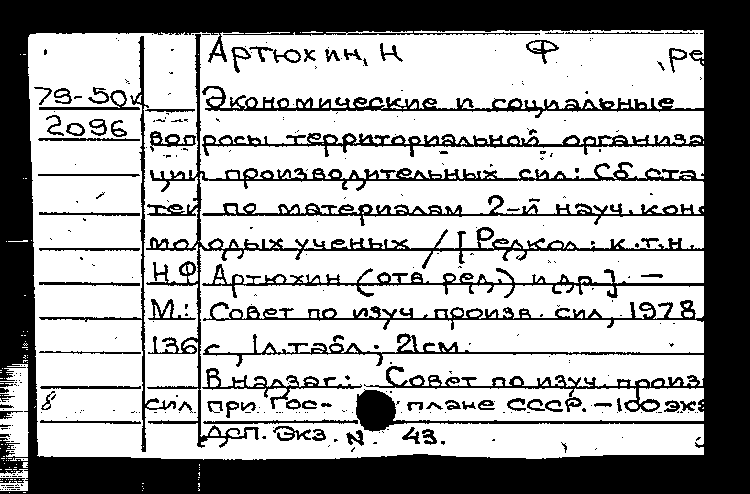 Артюхин, Н Ф , ре
79-50к Экономические и социальные
2096 вопросы территориальной организа
ции производительных сил: Сб. ста-
тей по материалам 2-й науч. кон
молодых ученых / [Редкол: к.т.н.
Н.Ф Артюхин (отв. ред.) и др.]. —
М.: Совет по изуч. произв. сил, 1978.
136 с, 1л.табл.; 21см.
В надзаг.: Совет по изуч. произ
8 сил при Гос- плане СССР. -100 экз
Дсп. Экз. N 43.